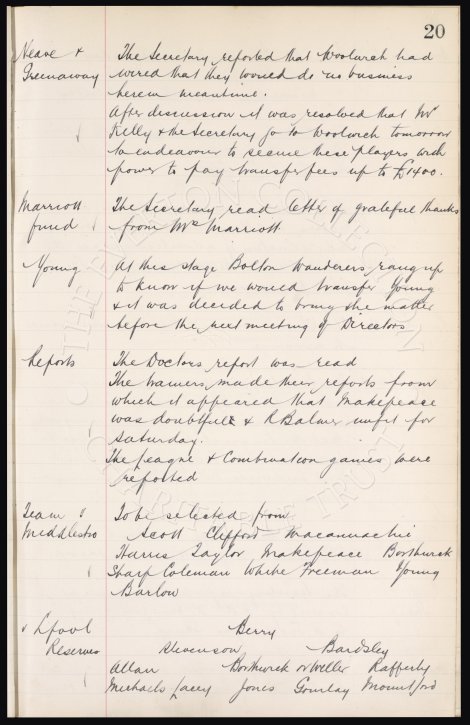 20
Neave & The Secretary reported that Woolwich had
Greenaway wired that they would do no business
herein meantime.
After discussion it was resolved that Mr
Kelly & the Secretary go to Woolwich tomorrow
to endeavour to secure these players with
power to pay transfer fees up to £1400.
Marriott The Secretary read letter of grateful thanks
fund from Mrs Marriott
Young At this stage Bolton Wanderers rang up
to know if we would transfer Young
& it was decided to bring the matter
before the next meeting of Directors
Reports The Doctors report was read
The trainers made their reports from
which it appeared that Makepeace
was doubtful & R Balmer unfit for
Saturday.
The League & Combination games were
reported
Team v To be selected from
Middlesbro Scott Clifford Macconnachie
Harris Taylor Makepeace Borthwick
Sharp Coleman White Freeman Young
Barlow
v Lpool Berry
Reserves Stevenson Bardsley
Allan Borthwick or Weller Rafferty
Michaels Lacey Jones Gourlay Mountford
THE EVERTON COLLECTION
CHARITABLE TRUST